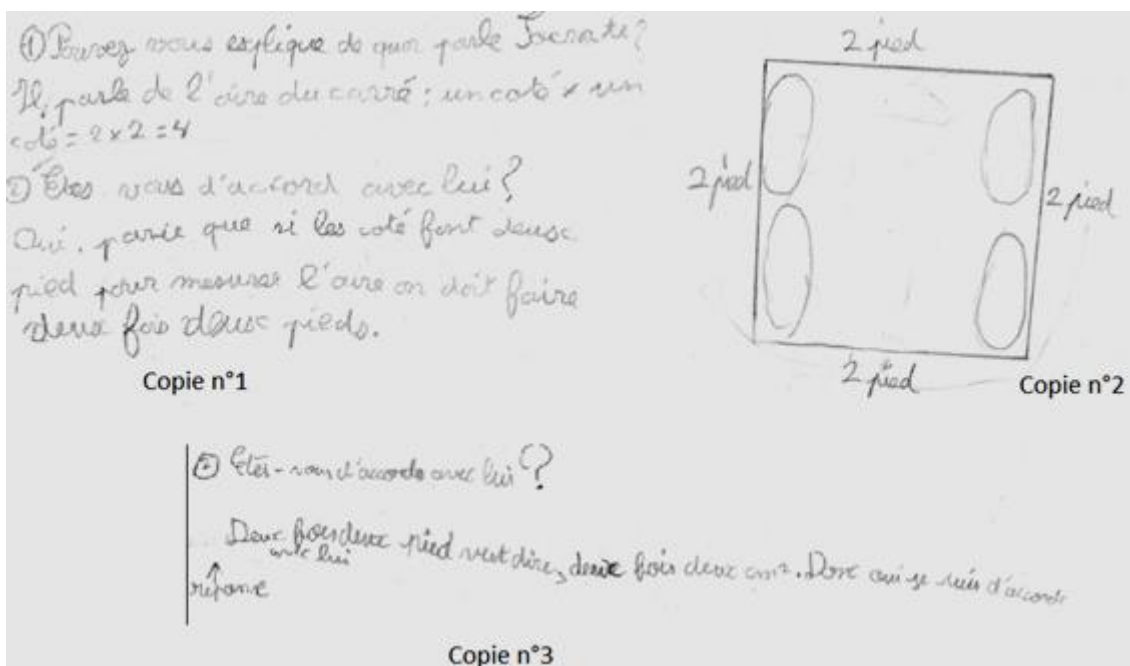 ① Pouvez vous explique de quoi parle Socrate?
Il parle de l'aire du carré : un coté × un
coté = 2 x 2 = 4
② Etes vous d'accord avec lui?
Oui. parce que si les coté font deux
pied pour mesurer l'aire on doit faire
deux fois deux pieds.
Copie n°1
2 pied
2 pied
2 pied
2 pied
Copie n°2
② Etes-vous d'accorde avec lui?
Deux fois deux pied veut dire, deux fois deux cm². Donc oui je suis d'accorde
avec lui
réponse
Copie n°3